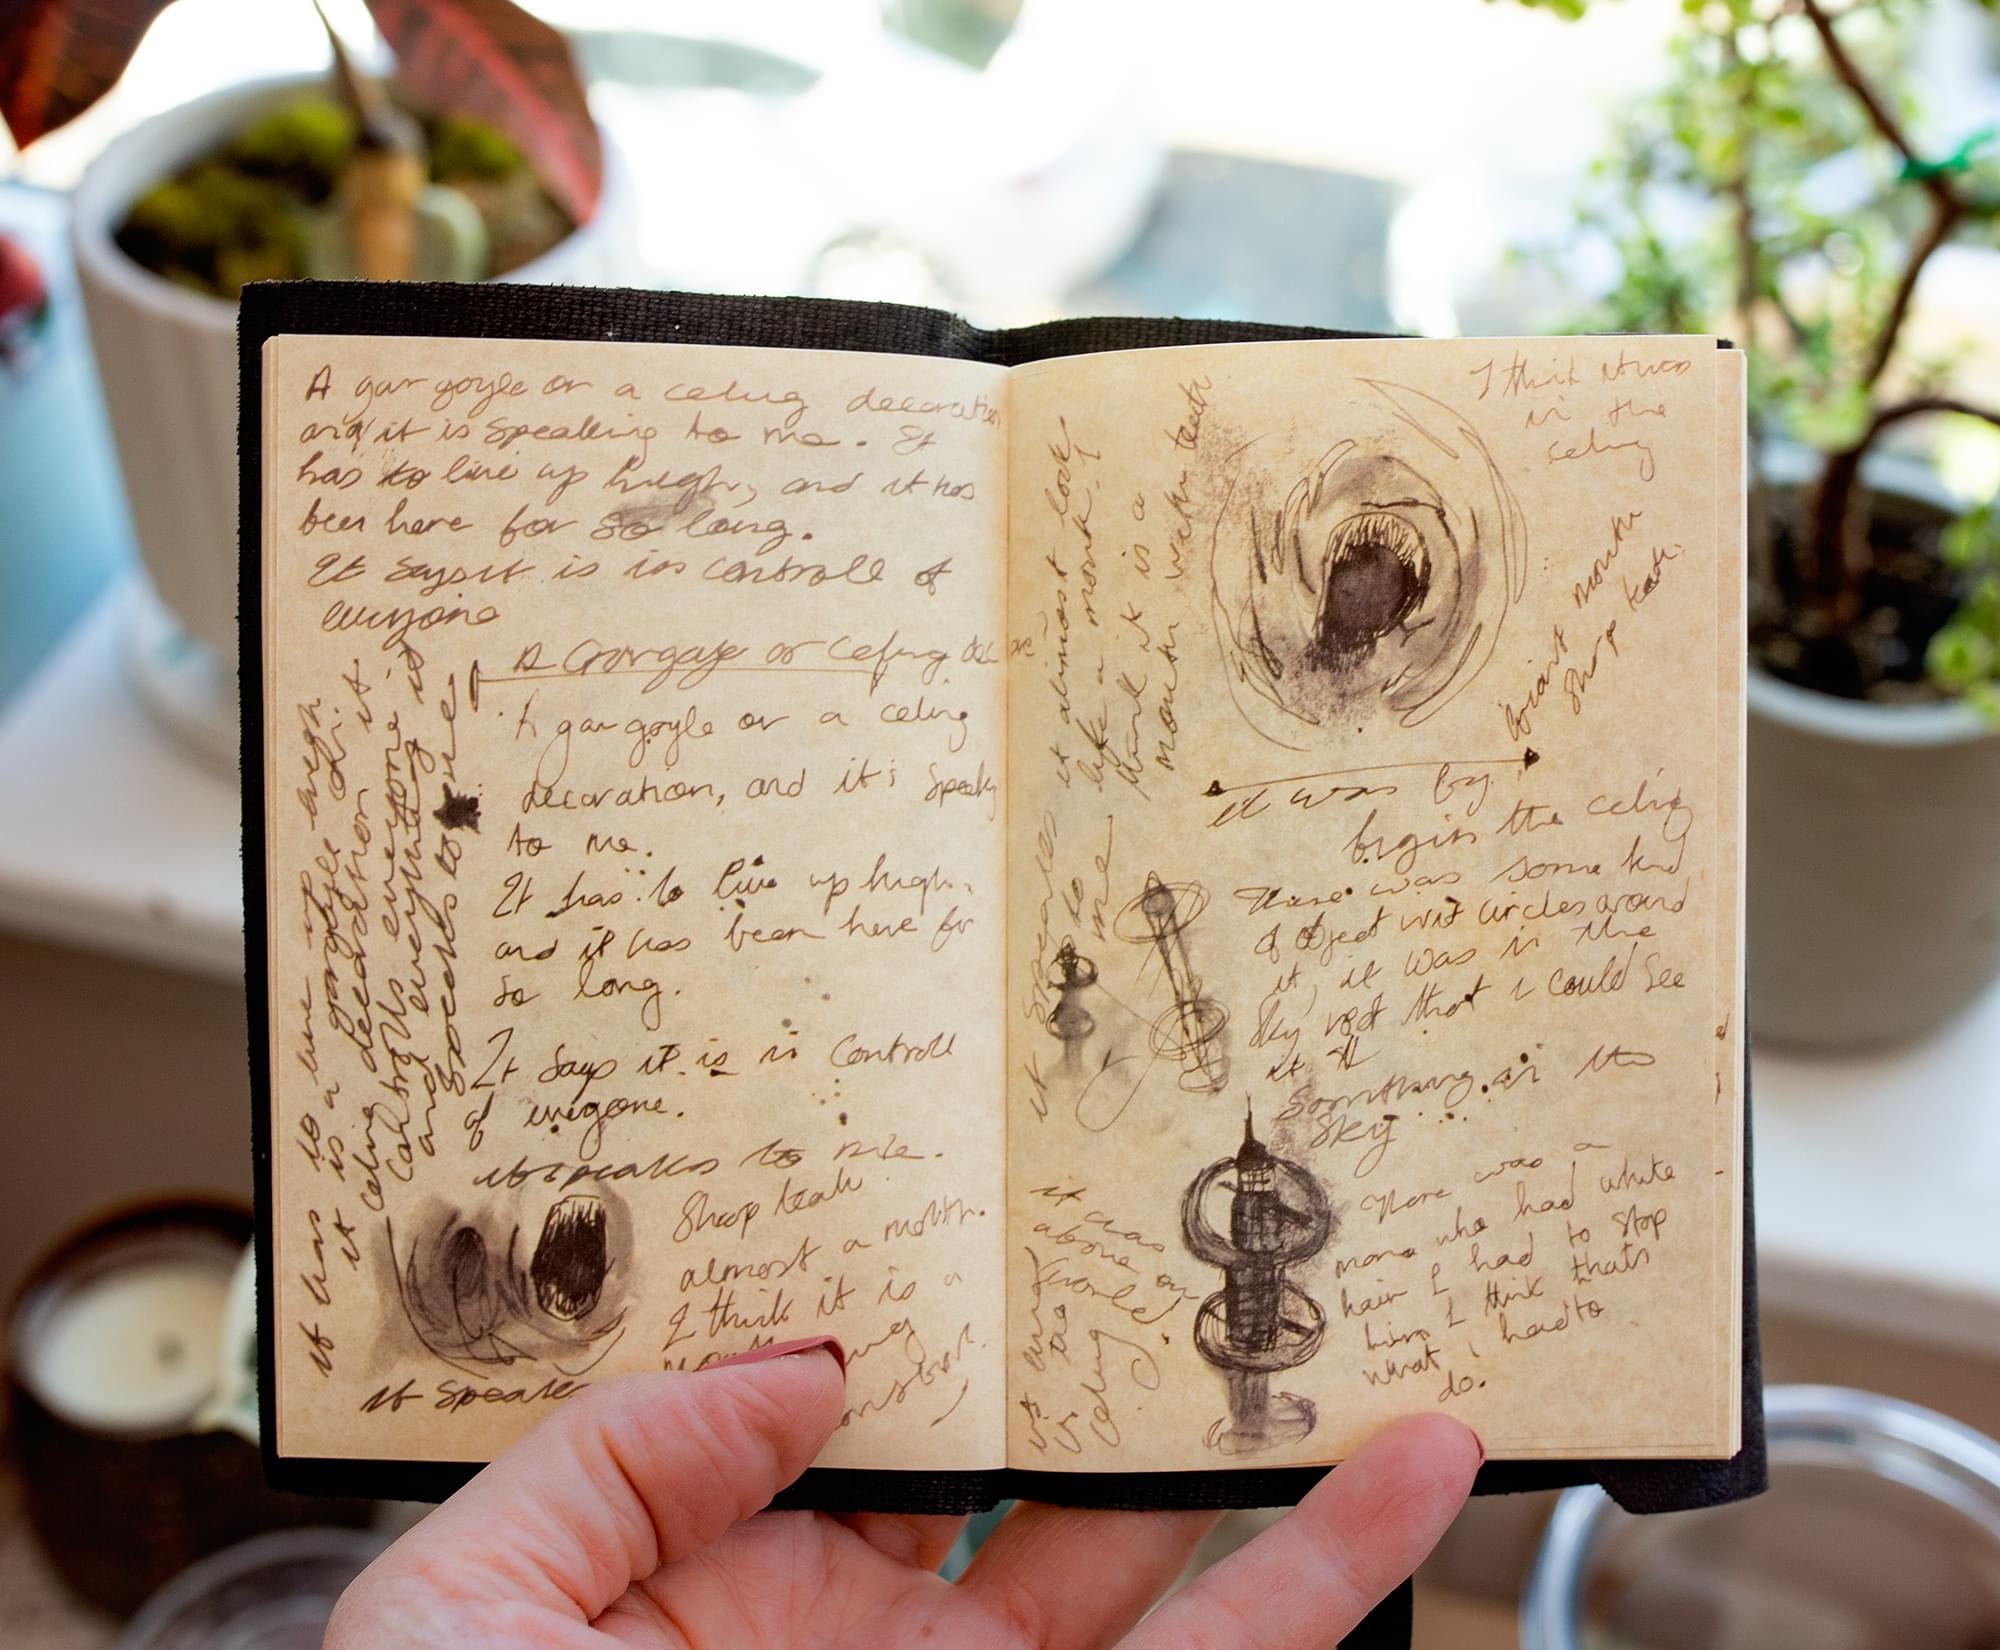 A gargoyle or a celing decoration
and it is speaking to me. It
has to live up high, and it has
been here for so long.
It says it is in controll of
everyone
A Gargoyle or Celing dec
A gargoyle or a celing
decoration, and it's speaky
to me.
It has to live up high.
and it has been here for
so long.
It says it is in controll
of everyone.
it speaks to me.
Sharp teath
almost a mouth.
I think it is a
it speaks
it has to live up high
it is a gargoyle or
celing decoration it
controlls everyone
and everything it
speaks to me
it almost looks
like a mouth. I
think it is a
mouth with teeth
it speaks
to
me
I think it was
in the
celing
Giant mouth
sharp teath.
it was by
begin the celing
There was some kind
of object with circles around
it, it was in the
sky that I could see
it
Something in the
sky...
There was a
man who had white
hair I had to stop
him I think thats
what i had to
do.
it was
above our
world
it lived
in the
celing